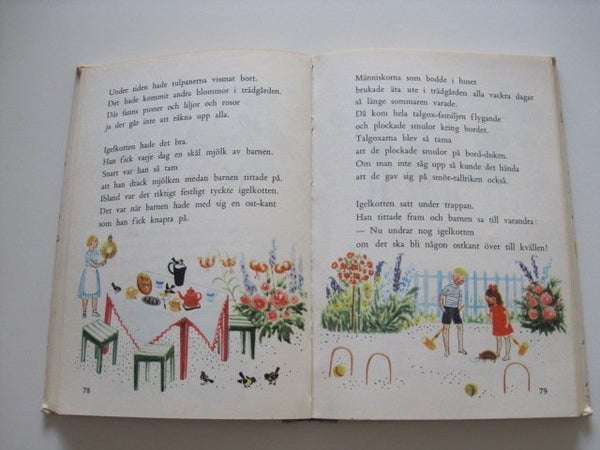 Under tiden hade tulpanerna vissnat bort.
Det hade kommit andra blommor i trädgården.
Där fanns pioner och liljor och rosor
ja det går inte att räkna upp alla.
Igelkotten hade det bra.
Han fick varje dag en skål mjölk av barnen.
Snart var han så tam
att han drack mjölken medan barnen tittade på.
Ibland var det riktigt festligt tyckte igelkotten.
Det var när barnen hade med sig en ost-kant
som han fick knapra på.
78
Människorna som bodde i huset
brukade äta ute i trädgården alla vackra dagar
så länge sommaren varade.
Då kom hela talgox-familjen flygande
och plockade smulor kring bordet.
Talgoxarna blev så tama
att de plockade smulor på bord-duken.
Om man inte såg upp så kunde det hända
att de gav sig på smör-tallriken också.
Igelkotten satt under trappan.
Han tittade fram och barnen sa till varandra:
— Nu undrar nog igelkotten
om det ska bli någon ostkant över till kvällen!
79